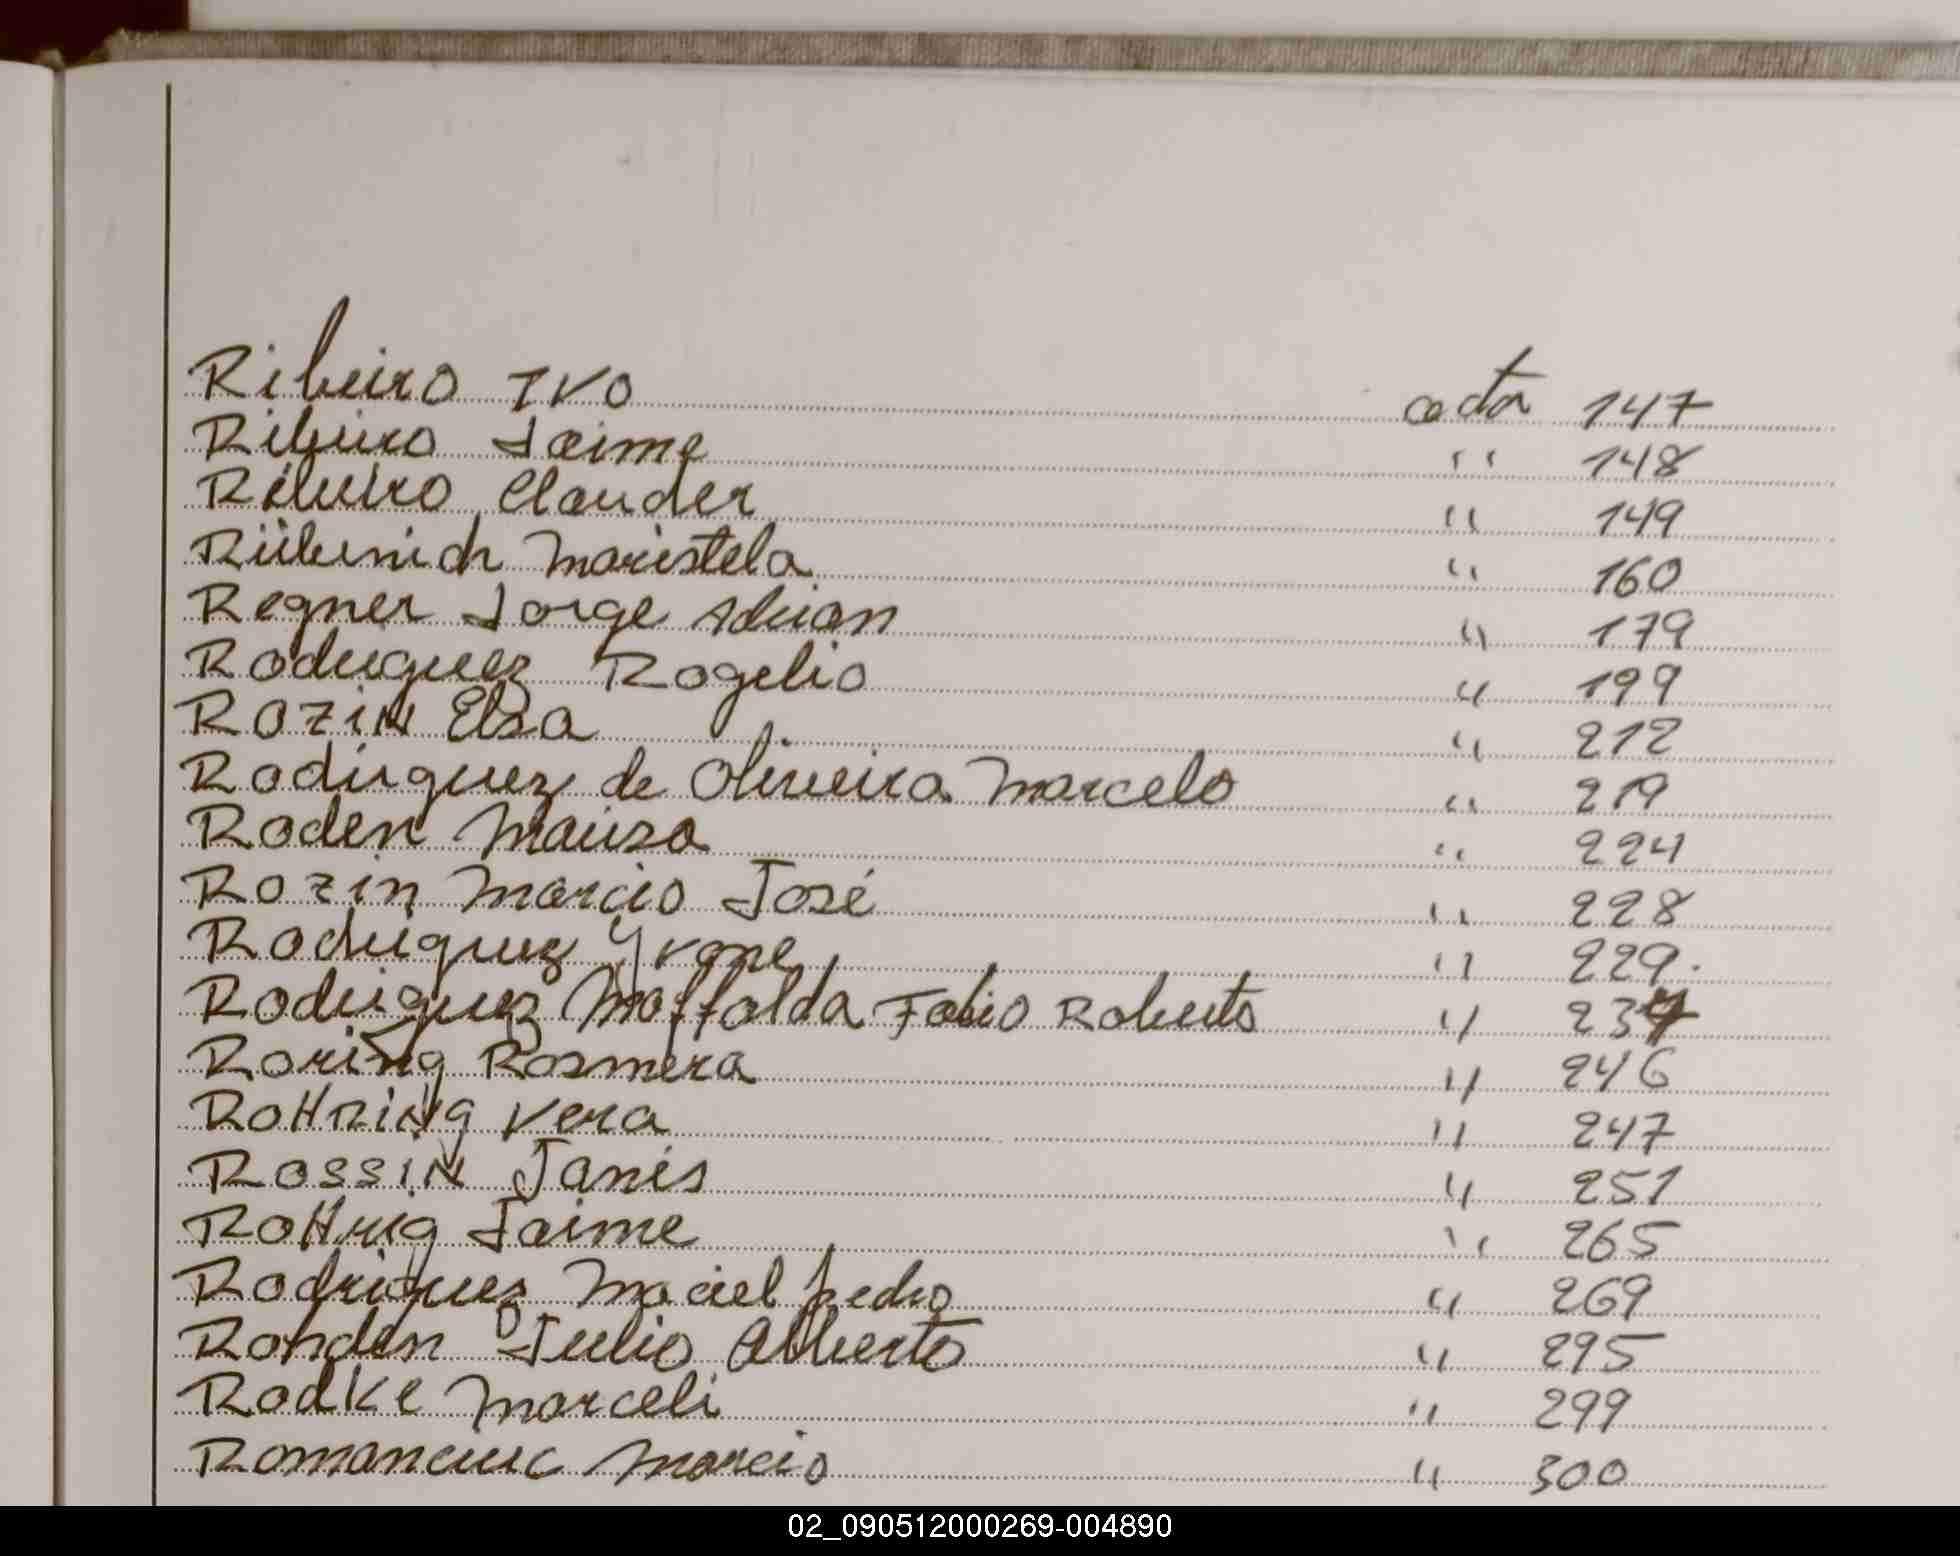 Ribeiro Ivo acta 147
Ribeiro Jaime " 148
Ribeiro Clauder " 149
Rübenich Maristela " 160
Regner Jorge Adrian " 179
Rodriguez Rogelio " 199
Rozin Elsa " 212
Rodriguez de Oliveira Marcelo " 219
Roden " 224
Rozin Marcio José " 228
Rodriguez Yvone " 229.
Rodriguez Maffalda Fabio Roberto " 237
Roring Rosmera " 246
Rohring Vera " 247
Rossin Janis " 251
Rohrig Jaime " 265
Rodriguez Maciel Pedro " 269
Rohden Julio Alberto " 295
Radke Marceli " 299
Romanciuc Marcio " 300
02_090512000269-004890